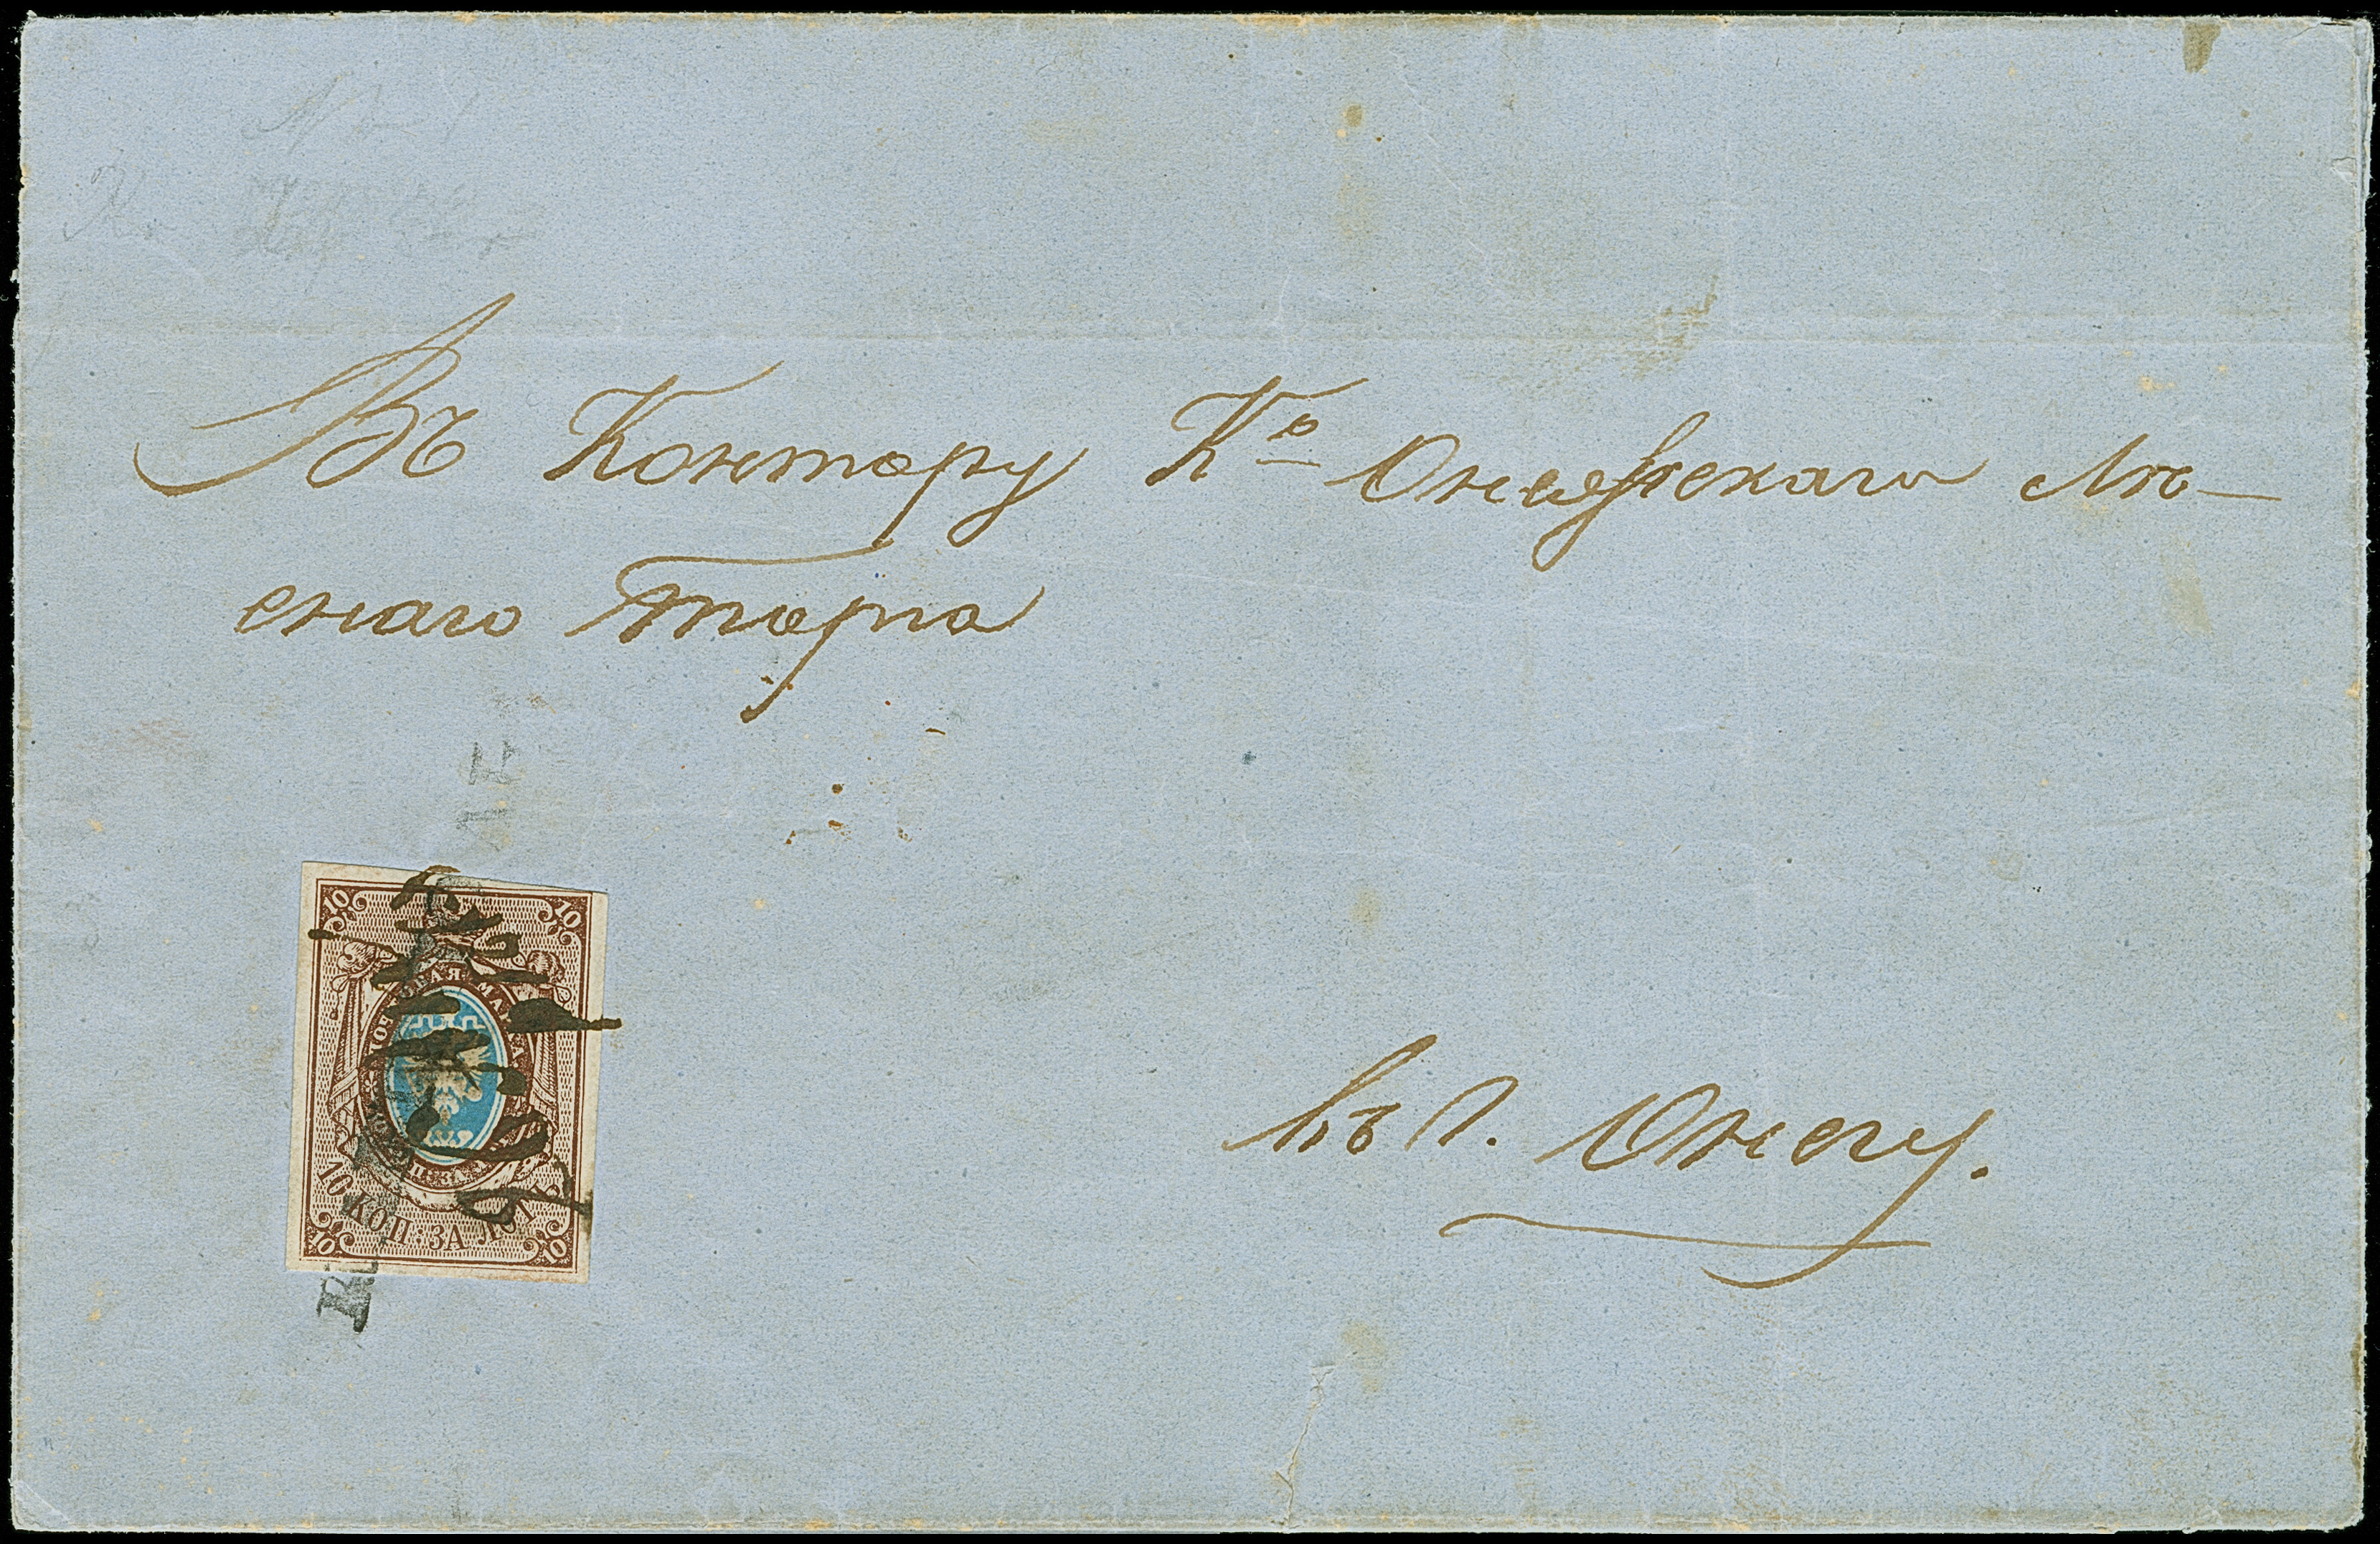 Въ Контору Ко Онежскаго Лѣ-
снаго Торга
въ г. Онегу.
10 10
10 КОП. ЗА ЛОТЪ
10 10